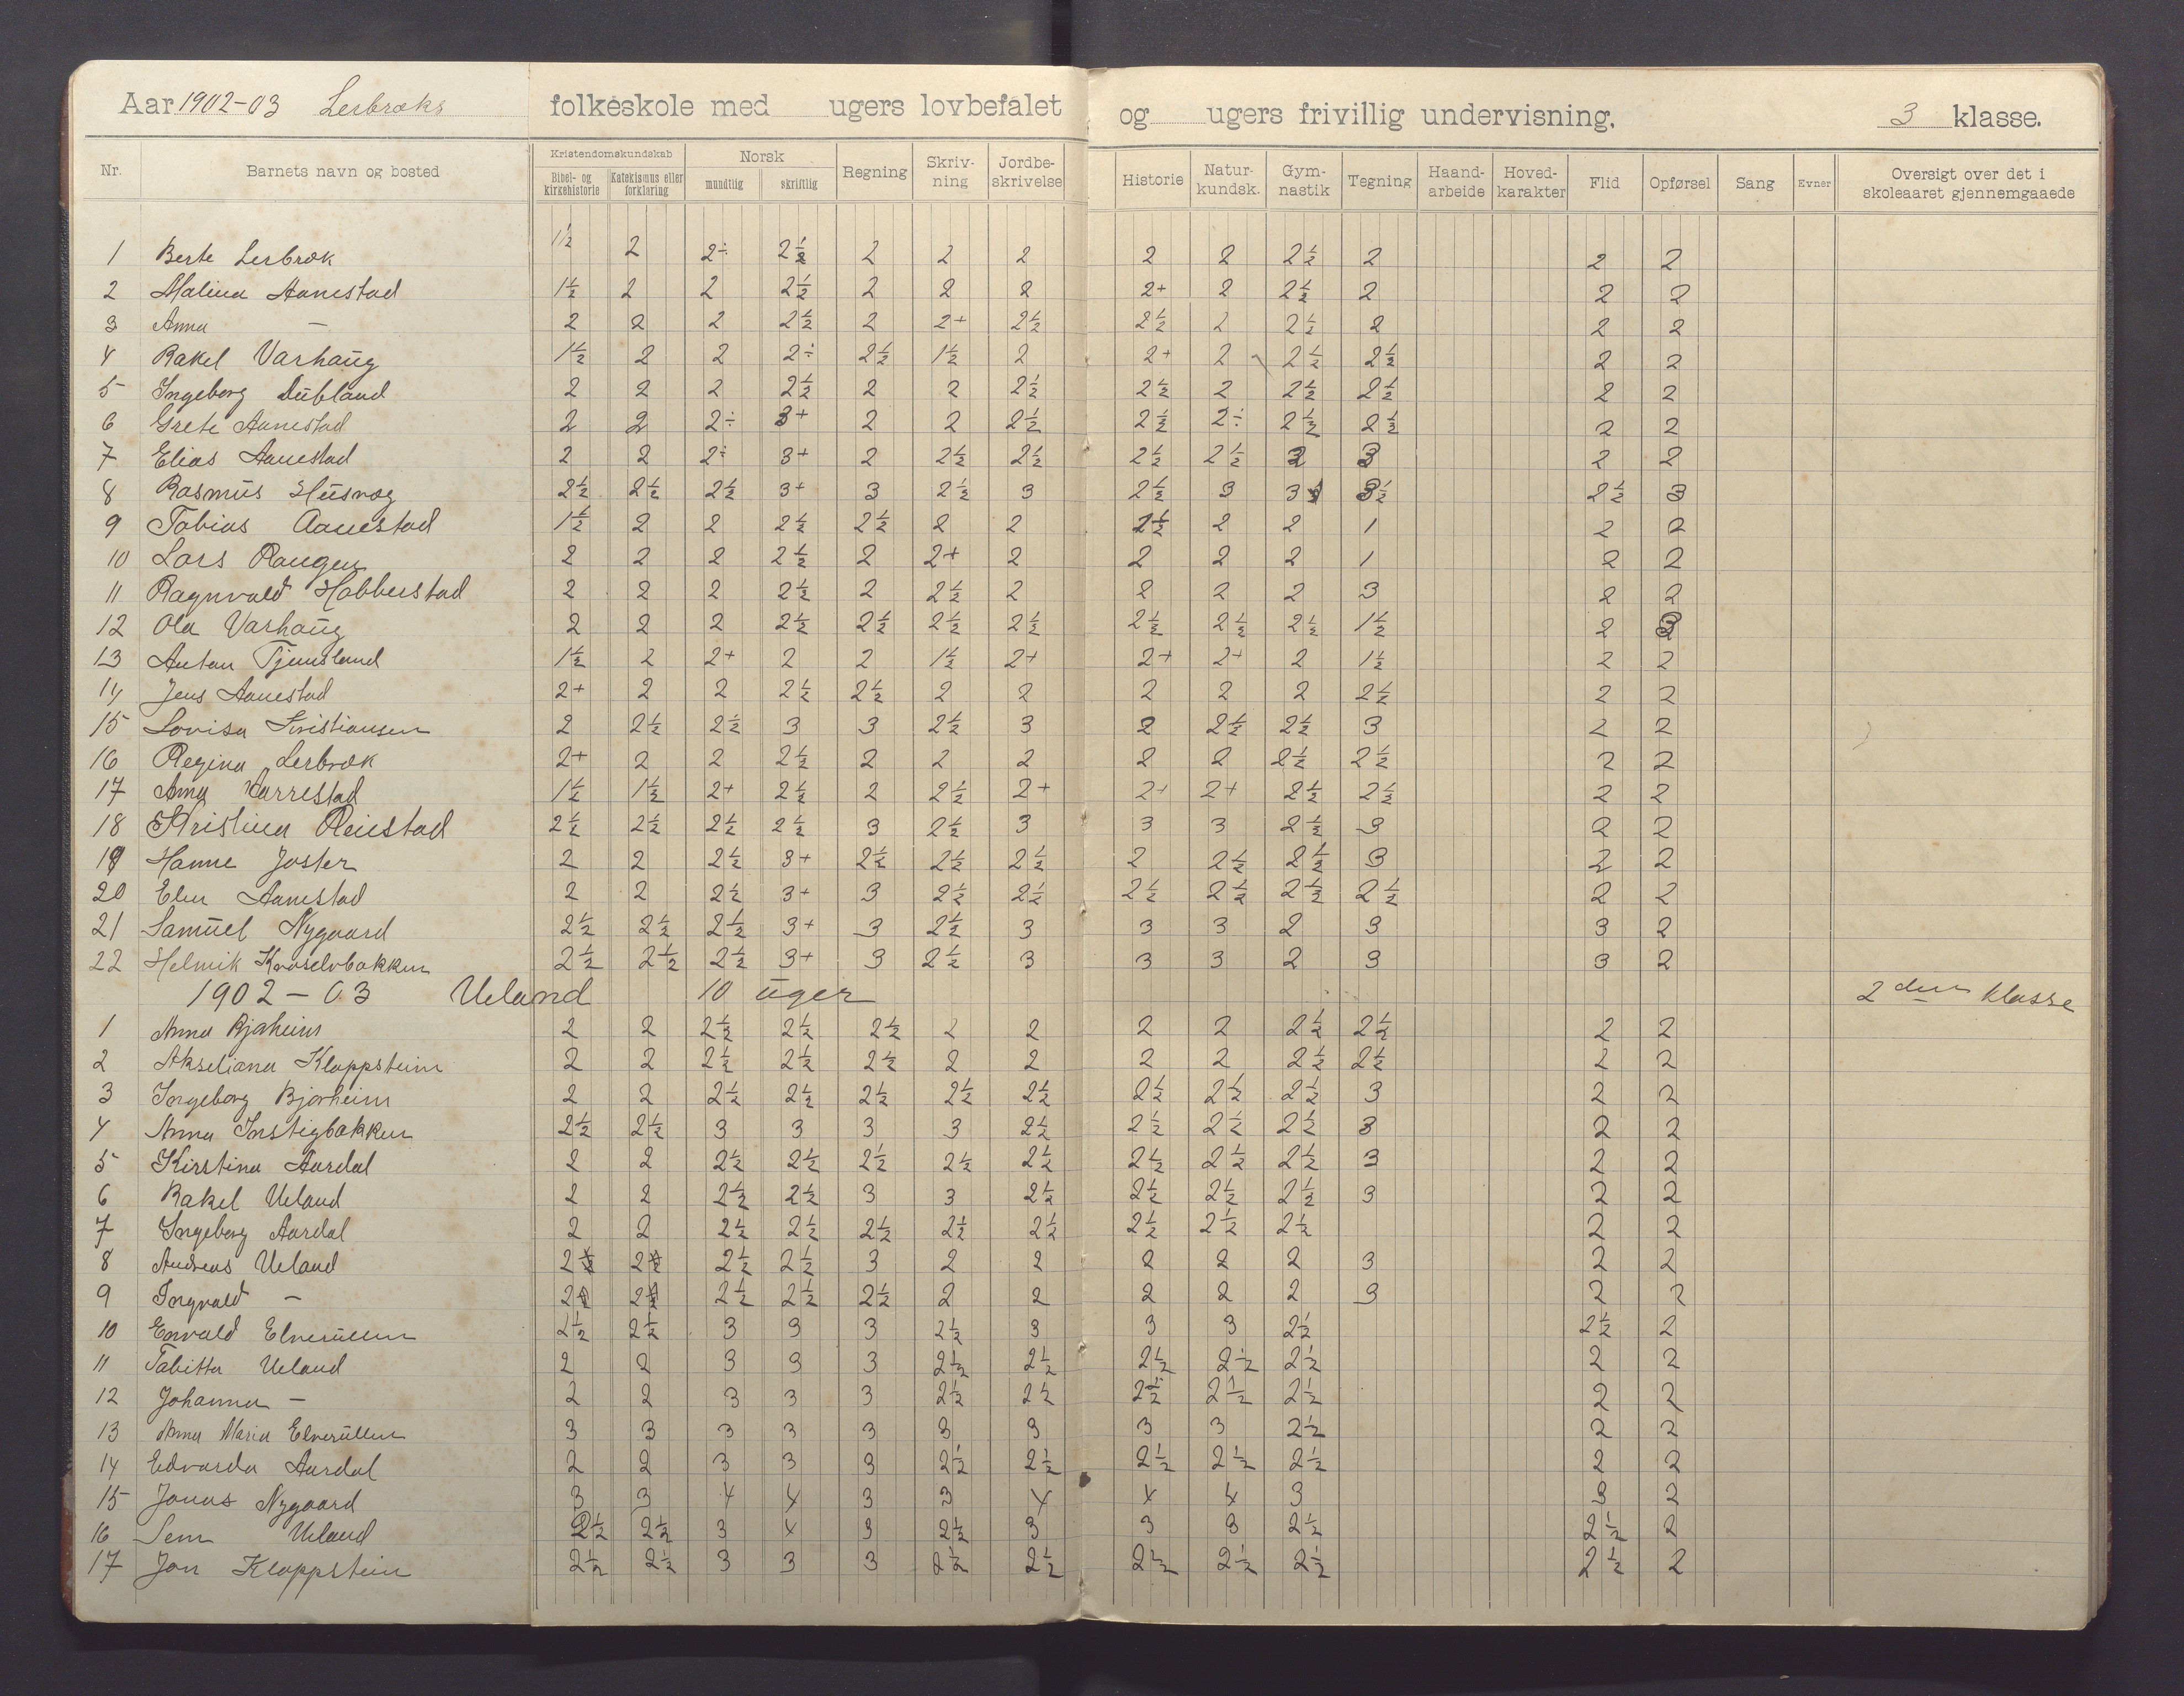 Aar 1902-03 Lerbræks folkeskole med ugers lovbefalet og ugers frivillig undervisning. 3 klasse.
Nr. Barnets navn og bosted Kristendomskundskab Bibel- og kirkehistorie Katekismus eller forklaring Norsk mundtlig skriftlig Regning Skriv-ning Jordbe-skrivelse Historie Natur-kundsk. Gym-nastik Tegning Haand-arbeide Hoved-karakter Flid Opførsel Sang Evner Oversigt over det i skoleaaret gjennemgaaede
1 Berte Lerbræk 1½ 2 2÷ 2½ 2 2 2 2 2 2½ 2 2 2
2 Malina Aanestad 1½ 2 2 2½ 2 2 2 2+ 2 2½ 2 2 2
3 Anna — 2 2 2 2½ 2 2+ 2½ 2½ 2 2½ 2 2 2
4 Rakel Varhaug 1½ 2 2 2÷ 2½ 1½ 2 2+ 2 2½ 2½ 2 2
5 Ingeborg Dubland 2 2 2 2½ 2 2 2½ 2½ 2 2½ 2½ 2 2
6 Grete Aanestad 2 2 2÷ 3+ 2 2 2½ 2½ 2÷ 2½ 2½ 2 2
7 Elias Aanestad 2 2 2÷ 3+ 2 2½ 2½ 2½ 2½ 3 2 2
8 Rasmus Husvæg 2½ 2½ 2½ 3+ 3 2½ 3 2½ 3 3 3½ 2½ 3
9 Tobias Aanestad 1½ 2 2 2½ 2½ 2 2 2½ 2 2 1 2 2
10 Lars Raugen 2 2 2 2½ 2 2+ 2 2 2 2 1 2 2
11 Ragnvald Hobberstad 2 2 2 2½ 2 2½ 2 2 2 2 3 2 2
12 Ola Varhaug 2 2 2 2½ 2½ 2½ 2½ 2½ 2½ 2½ 1½ 2 3
13 Anton Tjemsland 1½ 2 2+ 2 2 1½ 2+ 2+ 2+ 2 1½ 2 2
14 Jens Aanestad 2+ 2 2 2½ 2½ 2 2 2 2 2 2½ 2 2
15 Lovisa Kristiansen 2 2½ 2½ 3 3 2½ 3 2 2½ 2½ 3 2 2
16 Regina Lerbræk 2+ 2 2 2½ 2 2 2 2 2 2½ 2½ 2 2
17 Anna Varrestad 1½ 1½ 2+ 2½ 2 2½ 2+ 2+ 2+ 2½ 2½ 2 2
18 Kristina Reiestad 2½ 2½ 2½ 2½ 3 2½ 3 3 3 2½ 3 2 2
19 Hanne Joster 2 2 2½ 3+ 2½ 2½ 2½ 2 2½ 2½ 3 2 2
20 Elen Aanestad 2 2 2½ 3+ 3 2½ 2½ 2½ 2½ 2½ 2½ 2 2
21 Samuel Nygaard 2½ 2½ 2½ 3+ 3 2½ 3 3 3 2 3 3 2
22 Helmik Kvaselvbakken 2½ 2½ 2½ 3+ 3 2½ 3 3 3 2 3 3 2
1902-03 Ueland 10 uger 2den klasse
1 Anna Bjorheim 2 2 2½ 2½ 2½ 2 2 2 2 2½ 2½ 2 2
2 Akseliana Kloppstein 2 2 2½ 2½ 2½ 2 2 2 2 2½ 2½ 2 2
3 Ingeborg Bjorheim 2 2 2½ 2½ 2½ 2½ 2½ 2½ 2½ 2½ 3 2 2
4 Anna Instigbakken 2½ 2½ 3 3 3 3 2½ 2½ 2½ 2½ 3 2 2
5 Kirstina Aardal 2 2 2½ 2½ 2½ 2½ 2½ 2½ 2½ 2½ 3 2 2
6 Rakel Ueland 2 2 2½ 2½ 3 3 2½ 2½ 2½ 2½ 3 2 2
7 Ingeborg Aardal 2 2 2½ 2½ 2½ 2½ 2½ 2½ 2½ 2½ 2 2
8 Andreas Ueland 2 2 2½ 2½ 3 2 2 2 2 2 3 2 2
9 Ingvald — 2 2 2½ 2½ 2½ 2 2 2 2 2 3 2 2
10 Envald Elverullen 2½ 2½ 3 3 3 2½ 3 3 3 2½ 2½ 2
11 Tabitta Ueland 2 2 3 3 3 2½ 2½ 2½ 2½ 2½ 2 2
12 Johanna — 2 2 3 3 3 2½ 2½ 2½ 2½ 2½ 2 2
13 Anna Maria Elverullen 3 3 3 3 3 3 3 3 3 2½ 2 2
14 Edvarda Aardal 2 2 3 3 3 2½ 2½ 2½ 2½ 2½ 2 2
15 Jonas Nygaard 3 3 4 4 3 3 4 4 4 3 3 2
16 Sem Ueland 2½ 2½ 3 4 3 2½ 3 3 3 2½ 2½ 2
17 Jon Kloppstein 2½ 2½ 3 3 3 2½ 2½ 2½ 2½ 2½ 2½ 2